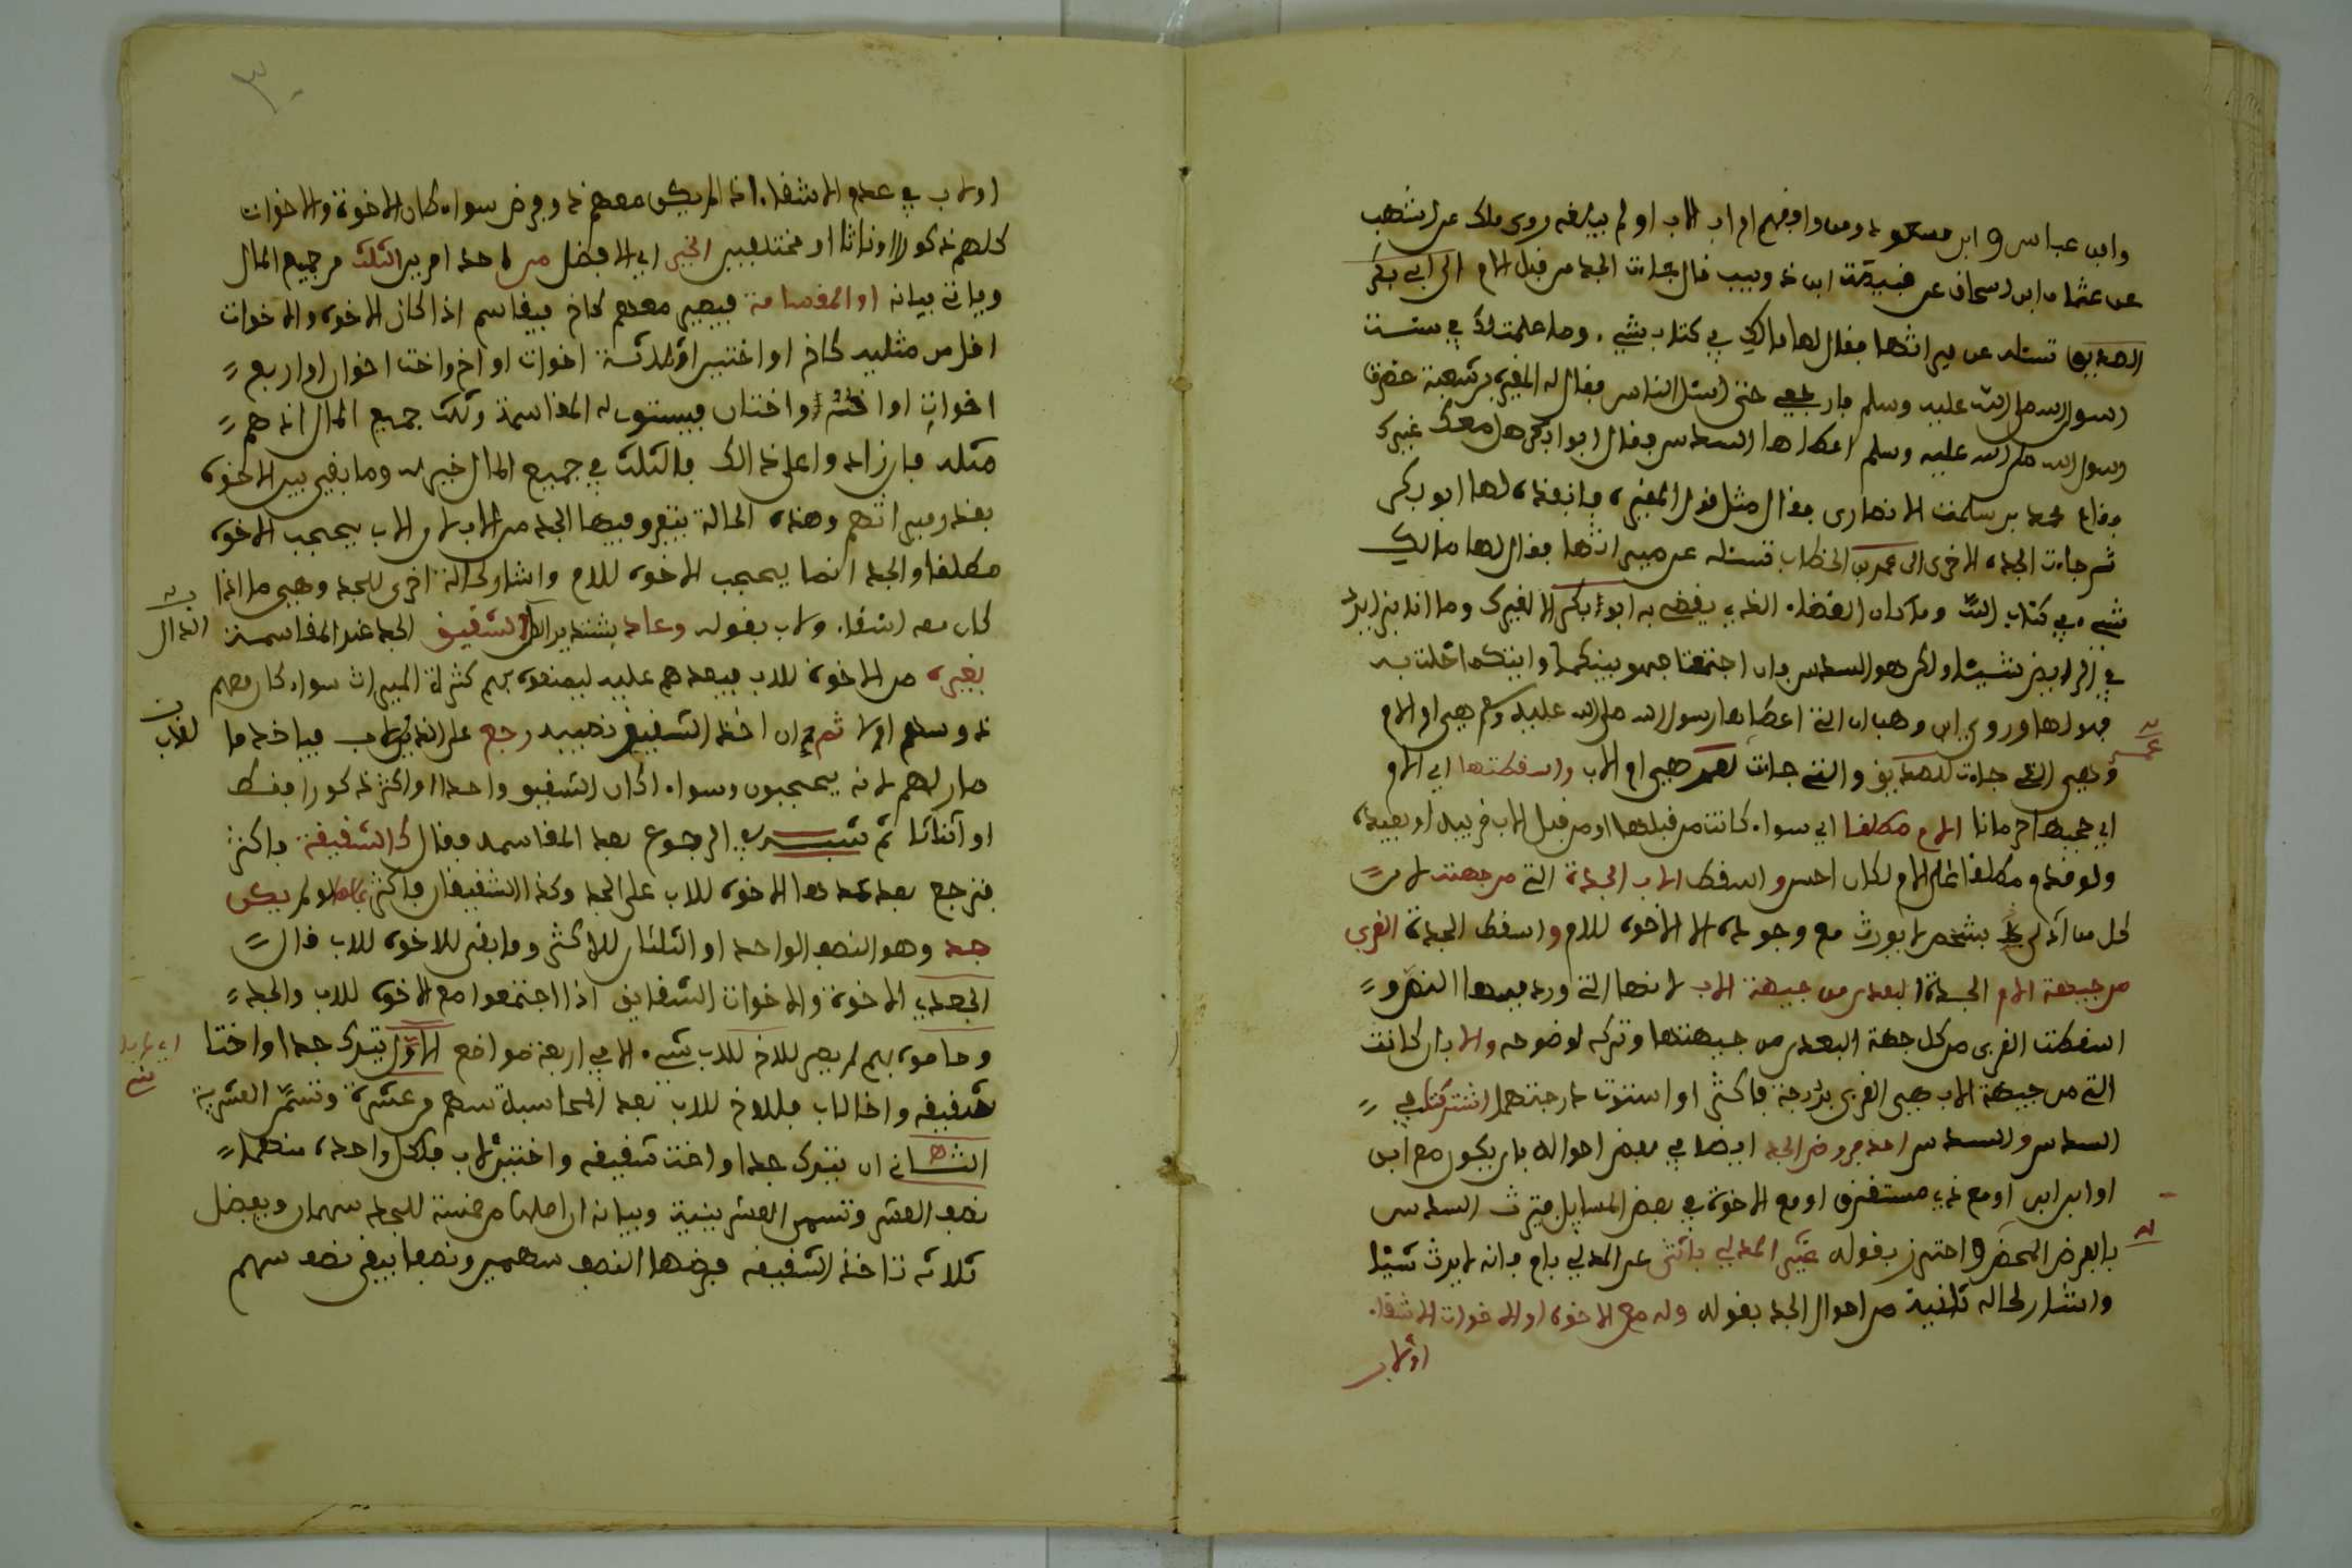 وابن عباس وابن مسعود ومن وافقهم ام اب الاب او لم يبلغه روى ملك عن ابن شهاب
عن عثمان ابن اسحاق عن قبيصة ابن ذويب قال جاءت الجدة من قبل الام الى ابي بكر
الصديق تسئله عن ميراثها فقال لها مالك في كتاب شيء وما علمت لك في سنت
رسول الله صلى الله عليه وسلم فارجعي حتى اسئل الناس فقال له المغيرة بن شعبة حضرت
رسول الله صلى الله عليه وسلم اعطاها السدس فقال ابوا بكر هل معك غيرك
فقام محمد بن سلمت الانصارى فقال مثل قول المغيرة فانفذه لها ابو بكر
ثم جاءت الجدة الاخرى الى عمر بن الخطاب تسئله عن ميراثها فقال لها مالك
شيء في كتاب الله وما كان القضاء الذي يقضي به ابوا بكر الا لغيرك وما انا بزايد
في الفرايض شيئا ولكن هو السدس فان اجتمعتا فهو بينكما وايتكما خلت به
فهو لها وروى ابن وهب ان التي اعطاها رسول الله صلى الله عليه وسلم هي ام الام
وهي التي جاءت للصديق والتي جات لعمر هي ام الاب واسقطتها اي الام
اي حجبها حرمانا الام مطلقا اي سواء كانت من قبلها او من قبل الاب قريبة او بعيدة
ولو قدم مطلقا على الام لكان احسن واسقط الاب الجدة التي من جهته لان
كل من ادلى بشخص لا يورث مع وجوده الا الاخوة للام واسقط الجدة القربى
من جهة الام الجدة البعدى من جهة الاب لانها التي ورد فيها النص و
اسقطت القربى من كل جهة البعدى من جهتها وتركه لوضوحه والا بان كانت
التي من جهة الاب هي القربى بدرجة فاكثر او استوت درجتهما اشتركتا في
السدس والسدس احد فروض الجد ايضا في بعض احواله بان يكون مع ابن
او ابن ابن او مع ذي مستغرق او مع الاخوة في بعض المسايل فيرث السدس
بالفرض المحض واحترز بقوله غير المدلي بانثى عن المدلي بام فانه لا يرث شيئا
واشار لحاله ثانية من احوال الجد بقوله وله مع الاخوة او الاخوات الاشقاء
او لاب
او لاب في عدم الاشقاء اذا لم يكن معهم ذو فرض سواء كان الاخوة والاخوات
كلهم ذكورا او اناثا او مختلفين الخير اي الافضل من احد امرين الثلث من جميع المال
وياتي بيانه او المقسامة فيصير معهم كاخ فيقاسم اذا كان الاخوة والاخوات
اقل من مثليه كاخ او اختين او ثلاثة اخوات او اخ واخت او اخوان او اربع
اخوات او اخ واختان فيستوي له المقاسمة وثلث جميع المال انهم
مثله فان زاد واعلى ذالك فالثلث في جميع المال خير له وما بقي بين الاخوة
بقدر ميراثهم وهذه الحالة يفترق فيها الجد من الاب لان الاب يحجب الاخوة
مطلقا والجد انما يحجب الاخوة للام واشار لحالة اخرى للجد وهي ما اذا
كان معه اشقاء ولاب بقوله وعاد بشتديد الدال الشقيق الجد عند المقاسمة
بغيره من الاخوة للاب فيعدهم عليه ليمنعوه بهم كثرة الميراث سواء كان معهم
ذو سهم او لا ثم ان اخذ الشقيق نصيبه رجع على الذي لاب فياخذ ما
صار لهم لانه يحجبون وسواء اكان الشقيق واحدا او اكثر ذكورا فقط
او اناثا ثم شبه في الرجوع بعد المقاسمة وقال كالشقيقة فاكثر
فترجع بعد عدها الاخوة للاب على الجد وكذا الشقيقان فاكثر بمالها لو لم يكن
جد وهو النصف الواحد او الثلثان للاكثر وما بقي للاخوة للاب قال
الجعدي الاخوة والاخوات الشقايق اذا اجتمعوا مع الاخوة للاب والجد
وحاصوه بهم لم يصر للاخ للاب شيء الا في اربعة مواضع الاول يترك جدا واختا
شقيقه واخا لاب فللاخ للاب بعد المحاسبة سهم من عشرة وتسمى العشرية
الثاني ان يترك جدا واخت شقيقه واختين لاب فلكل واحدة منهما
نصف العشر وتسمى العشرينية وبيانه ان اصلها من خمسة للجد سهمان ويفضل
ثلاثه تاخذ الشقيقه فرضها النصف سهمين ونصفا يبقى نصف سهم